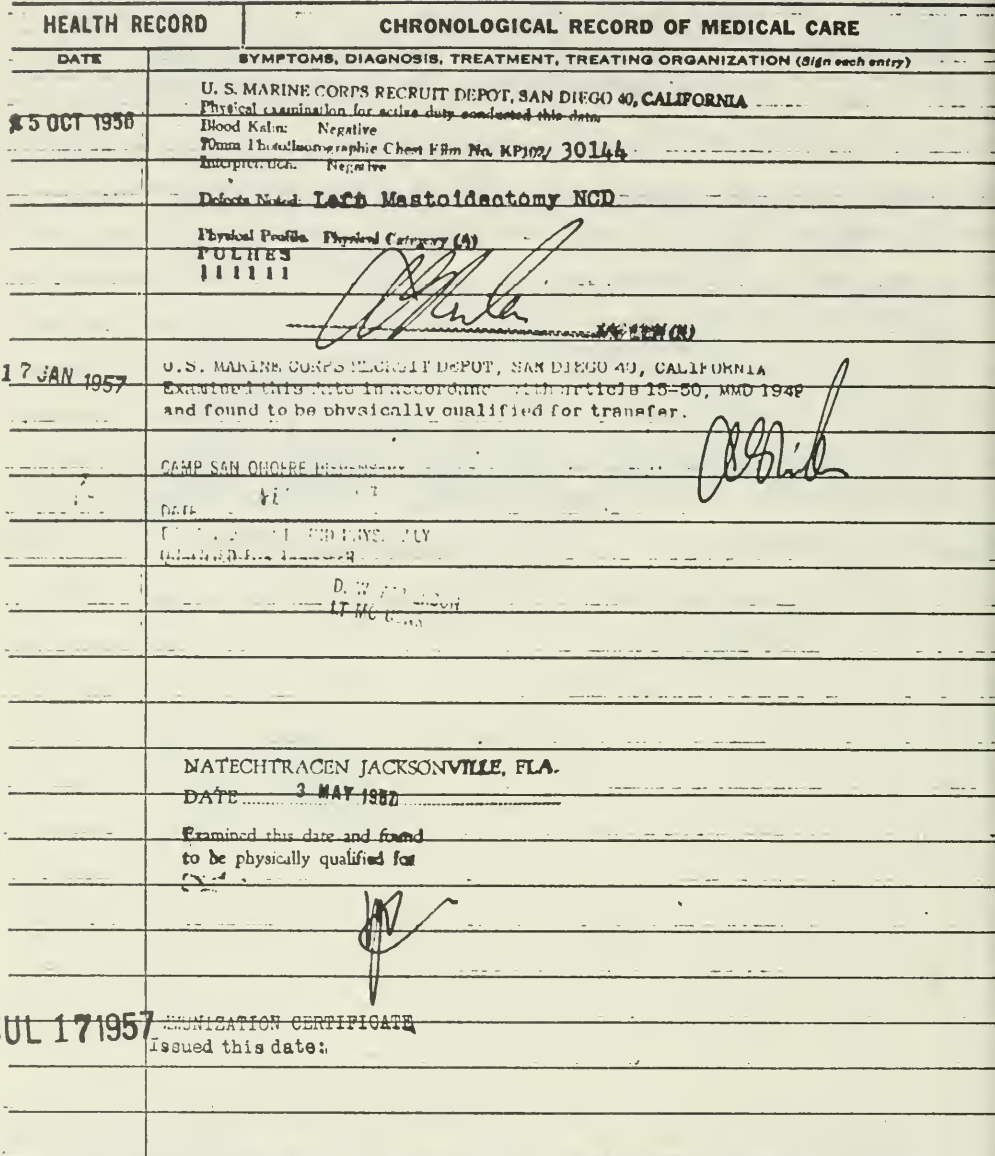 HEALTH RECORD
CHRONOLOGICAL RECORD OF MEDICAL CARE
DATE
SYMPTOMS, DIAGNOSIS, TREATMENT, TREATING ORGANIZATION (Sign each entry)
U. S. MARINE CORPS RECRUIT DEPOT, SAN DIEGO 40, CALIFORNIA
Physical examination for active duty conducted this date.
5 OCT 1956
Blood Kahn: Negative
70mm Photofluorographic Chest Film No. KP102/ 30144
Interpretation. Negative
Defects Noted: Left Mastoidectomy NCD
Physical Profile. Physical Category (A)
PULHES
111111
17 JAN 1957
U.S. MARINE CORPS RECRUIT DEPOT, SAN DIEGO 40, CALIFORNIA
Examined this date in accordance with article 15-50, MMD 1948
and found to be physically qualified for transfer.
CAMP SAN ONOFRE DISPENSARY
DATE
D. W.
LT MC
NATECHTRACEN JACKSONVILLE, FLA.
DATE 3 MAY 1957
Examined this date and found
to be physically qualified for
JUL 17 1957
IMMUNIZATION CERTIFICATE
Issued this date: